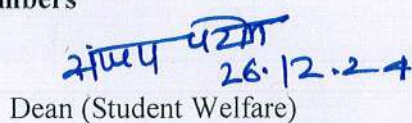 mbers
संजय
26.12.24
Dean (Student Welfare)